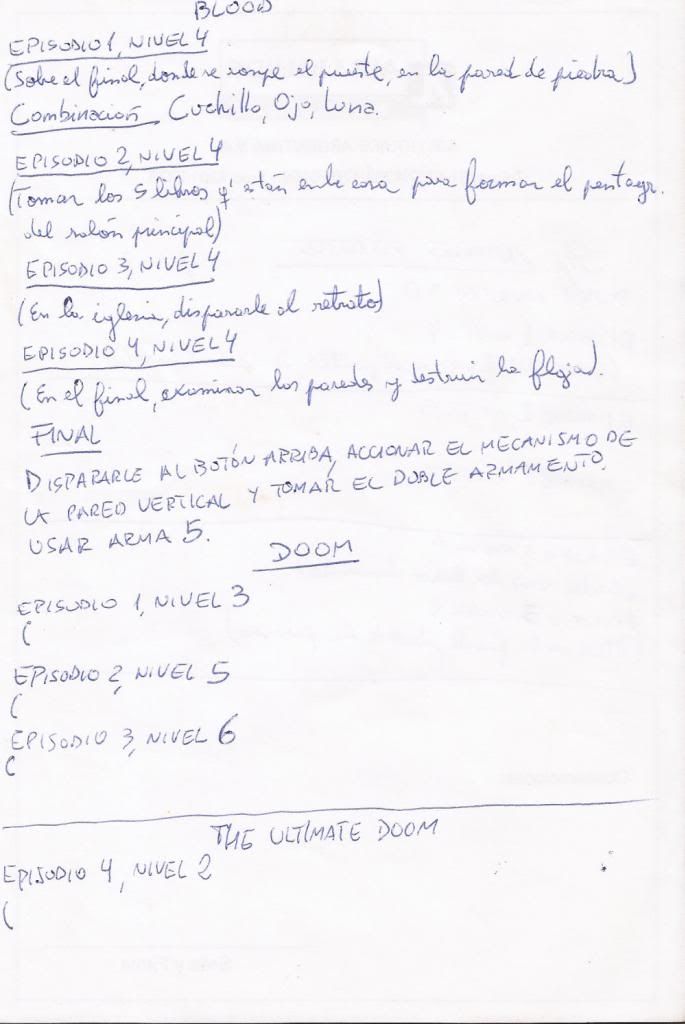 BLOOD
EPISODIO 1, NIVEL 4
(Sobre el final, donde se rompe el puente, en la pared de piedra)
Combinación Cuchillo, Ojo, Luna.
EPISODIO 2, NIVEL 4
(Tomar los 5 libros q' están en la casa para formar el pentagr.
del salón principal)
EPISODIO 3, NIVEL 4
(En la iglesia, dispararle al retrato)
EPISODIO 4, NIVEL 4
(En el final, examinar las paredes y destruir la floja).
FINAL
DISPARARLE AL BOTÓN ARRIBA, ACCIONAR EL MECANISMO DE
LA PARED VERTICAL Y TOMAR EL DOBLE ARMAMENTO.
USAR ARMA 5.
DOOM
EPISODIO 1, NIVEL 3
(
EPISODIO 2, NIVEL 5
(
EPISODIO 3, NIVEL 6
(
THE ULTIMATE DOOM
EPISODIO 4, NIVEL 2
(